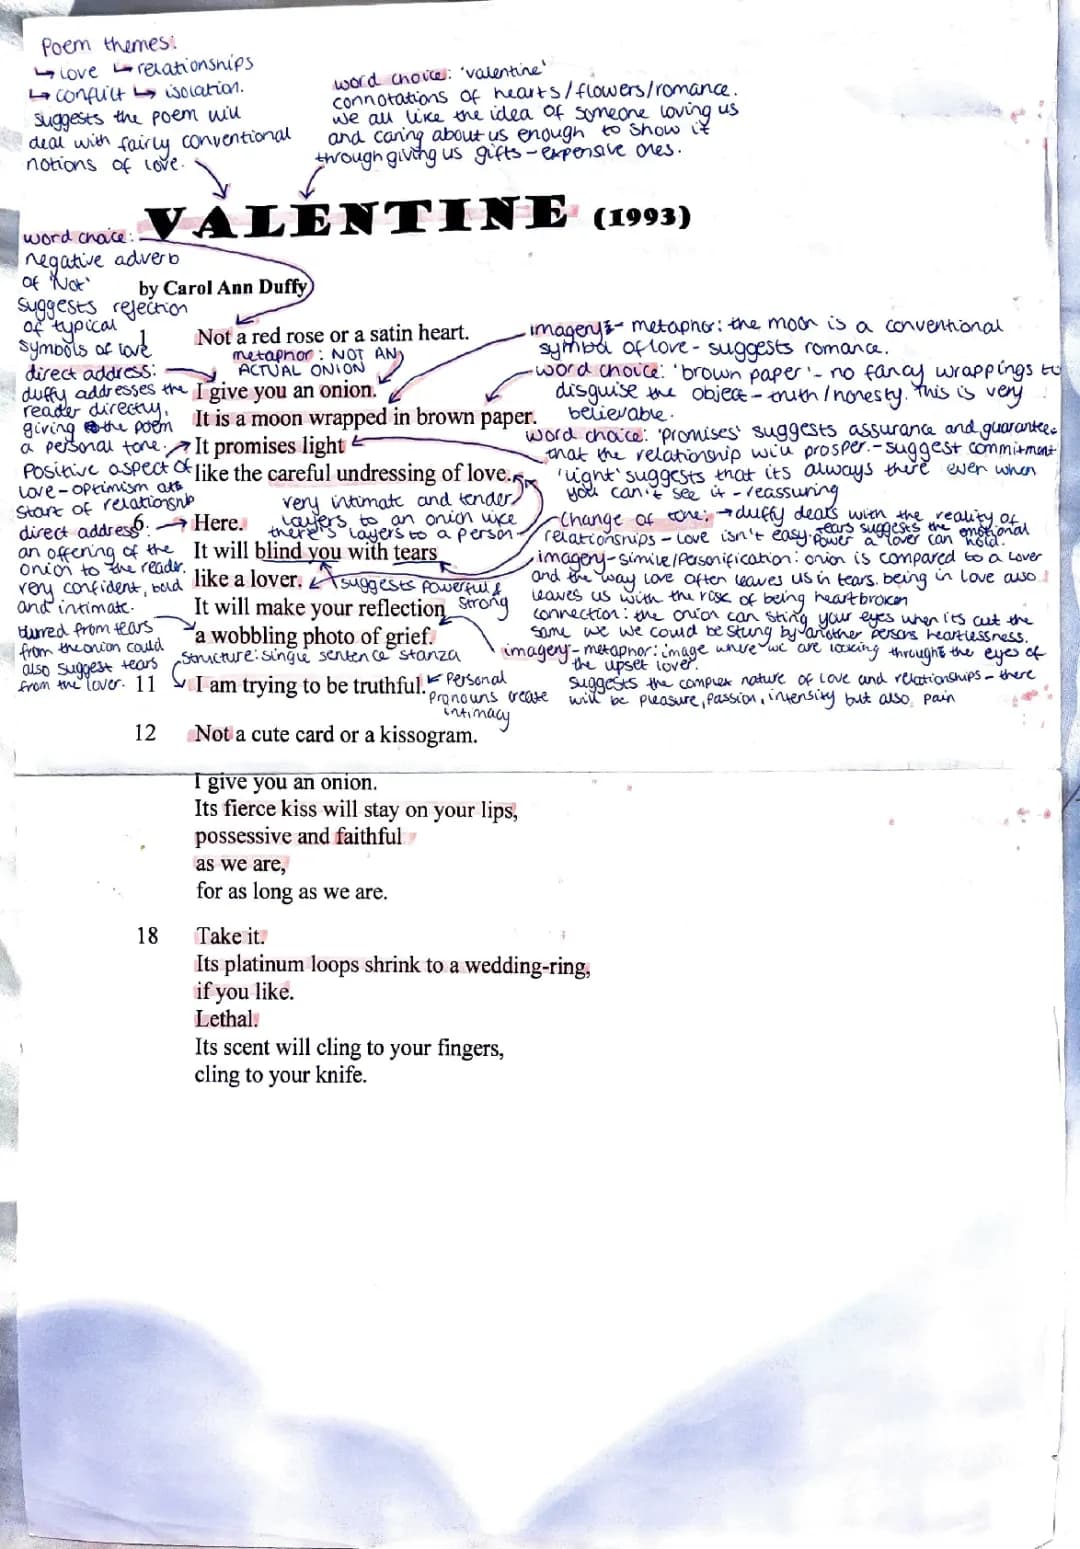 Poem themes:
↳ love ↳ relationships
↳ conflict ↳ isolation.
suggests the poem will
deal with fairly conventional
notions of love.
word choice: 'valentine'
connotations of hearts/flowers/romance.
we all like the idea of someone loving us
and caring about us enough to show it
through giving us gifts - expensive ones.
VALENTINE (1993)
by Carol Ann Duffy
word choice:
negative adverb
of 'Not'
suggests rejection
of typical
symbols of love
1 Not a red rose or a satin heart.
metaphor: NOT AN
ACTUAL ONION
direct address:
duffy addresses the
reader directly,
giving the poem
a personal tone.
I give you an onion.
It is a moon wrapped in brown paper.
It promises light
like the careful undressing of love.
imagery - metaphor: the moon is a conventional
symbol of love - suggests romance.
word choice: 'brown paper' - no fancy wrappings to
disguise the object - truth/honesty. This is very
believable.
word choice: 'promises' suggests assurance and guarantees
that the relationship will prosper. - suggest commitment
'light' suggests that its always there even when
you can't see it - reassuring
Positive aspect of
love - optimism at
start of relationship
very intimate and tender
layers to an onion like
there's layers to a person
direct address
an offering of the
onion to the reader.
very confident, bold
and intimate.
6 Here.
It will blind you with tears
like a lover.
suggests powerful &
strong
It will make your reflection
a wobbling photo of grief.
change of tone: → duffy deals with the reality of
relationships - love isn't easy. tears suggests the emotional
power a lover can hold.
imagery - simile/personification: onion is compared to a lover
and the way love often leaves us in tears. being in love also
leaves us with the risk of being heartbroken
connection: the onion can sting your eyes when its cut the
same we we could be stung by another persons heartlessness.
imagery - metaphor: image where we are looking through the eyes of
the upset lover.
suggests the complex nature of love and relationships - there
will be pleasure, passion, intensity but also pain
blurred from tears
from the onion could
also suggest tears
from the lover.
structure: single sentence stanza
11 I am trying to be truthful.
Personal
pronouns create
intimacy
12 Not a cute card or a kissogram.
I give you an onion.
Its fierce kiss will stay on your lips,
possessive and faithful
as we are,
for as long as we are.
18 Take it.
Its platinum loops shrink to a wedding-ring,
if you like.
Lethal.
Its scent will cling to your fingers,
cling to your knife.